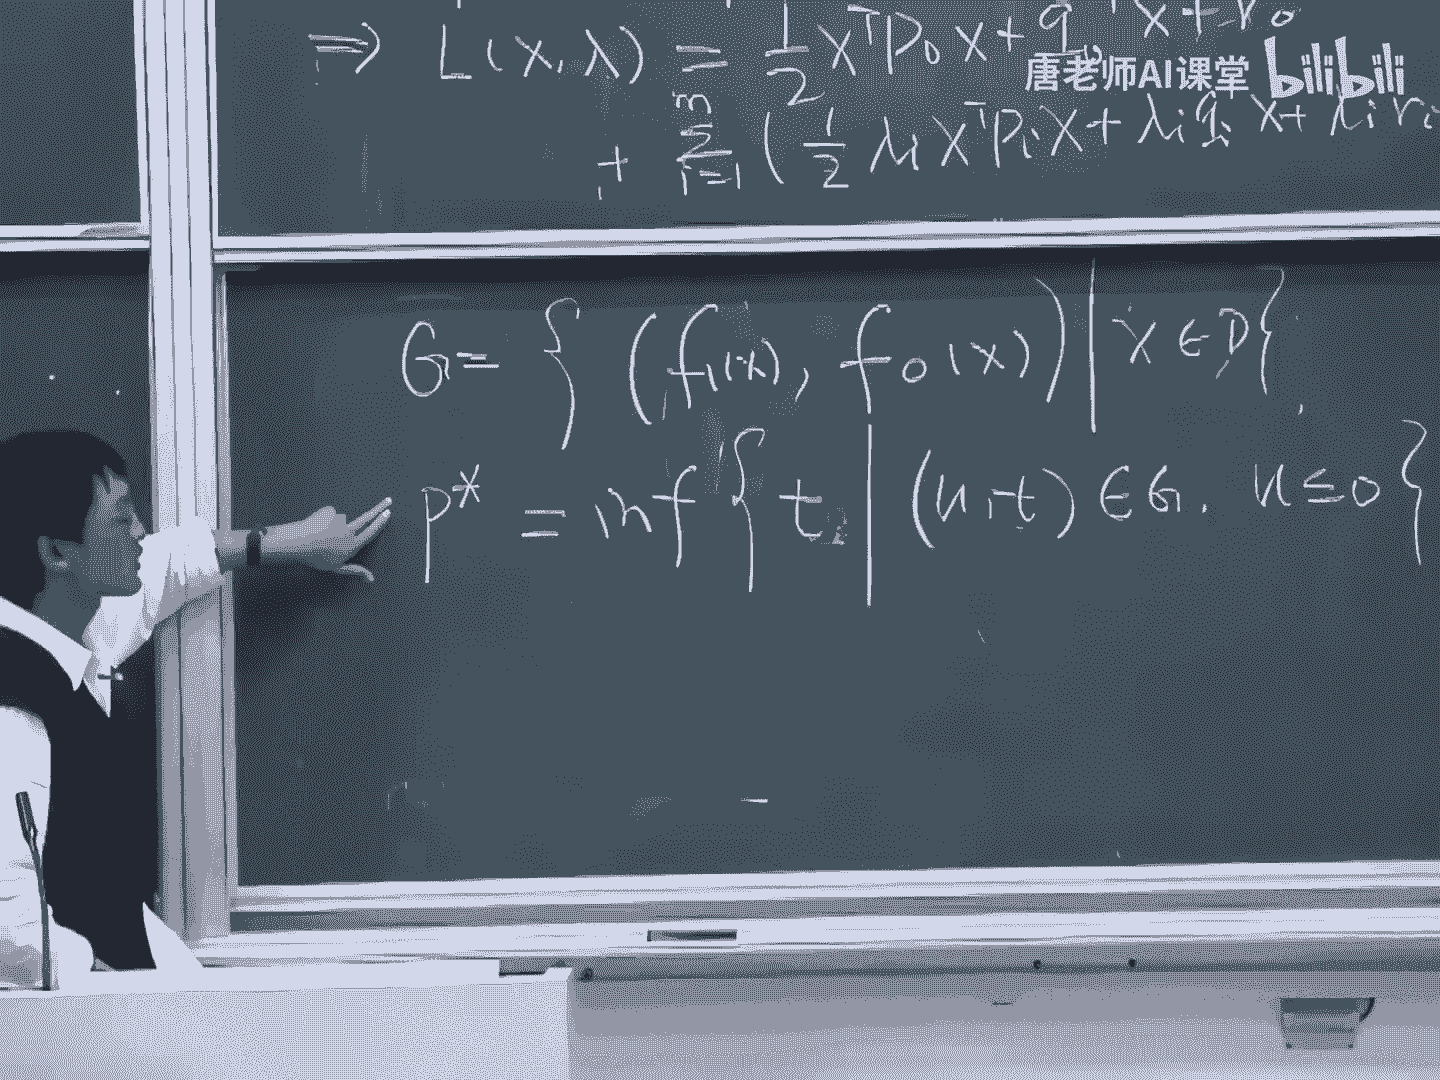 ⇒ L(x,λ) = 1/2 xᵀP₀x + q₀ᵀx + r₀
唐老师AI课堂 bilibili
+ Σ_{i=1}^{m} (1/2 λᵢxᵀPᵢx + λᵢqᵢx + λᵢrᵢ
G = { (f₁(x), f₀(x)) | x∈D }
p* = inf { t | (u,t) ∈ G. u ≤ 0 }